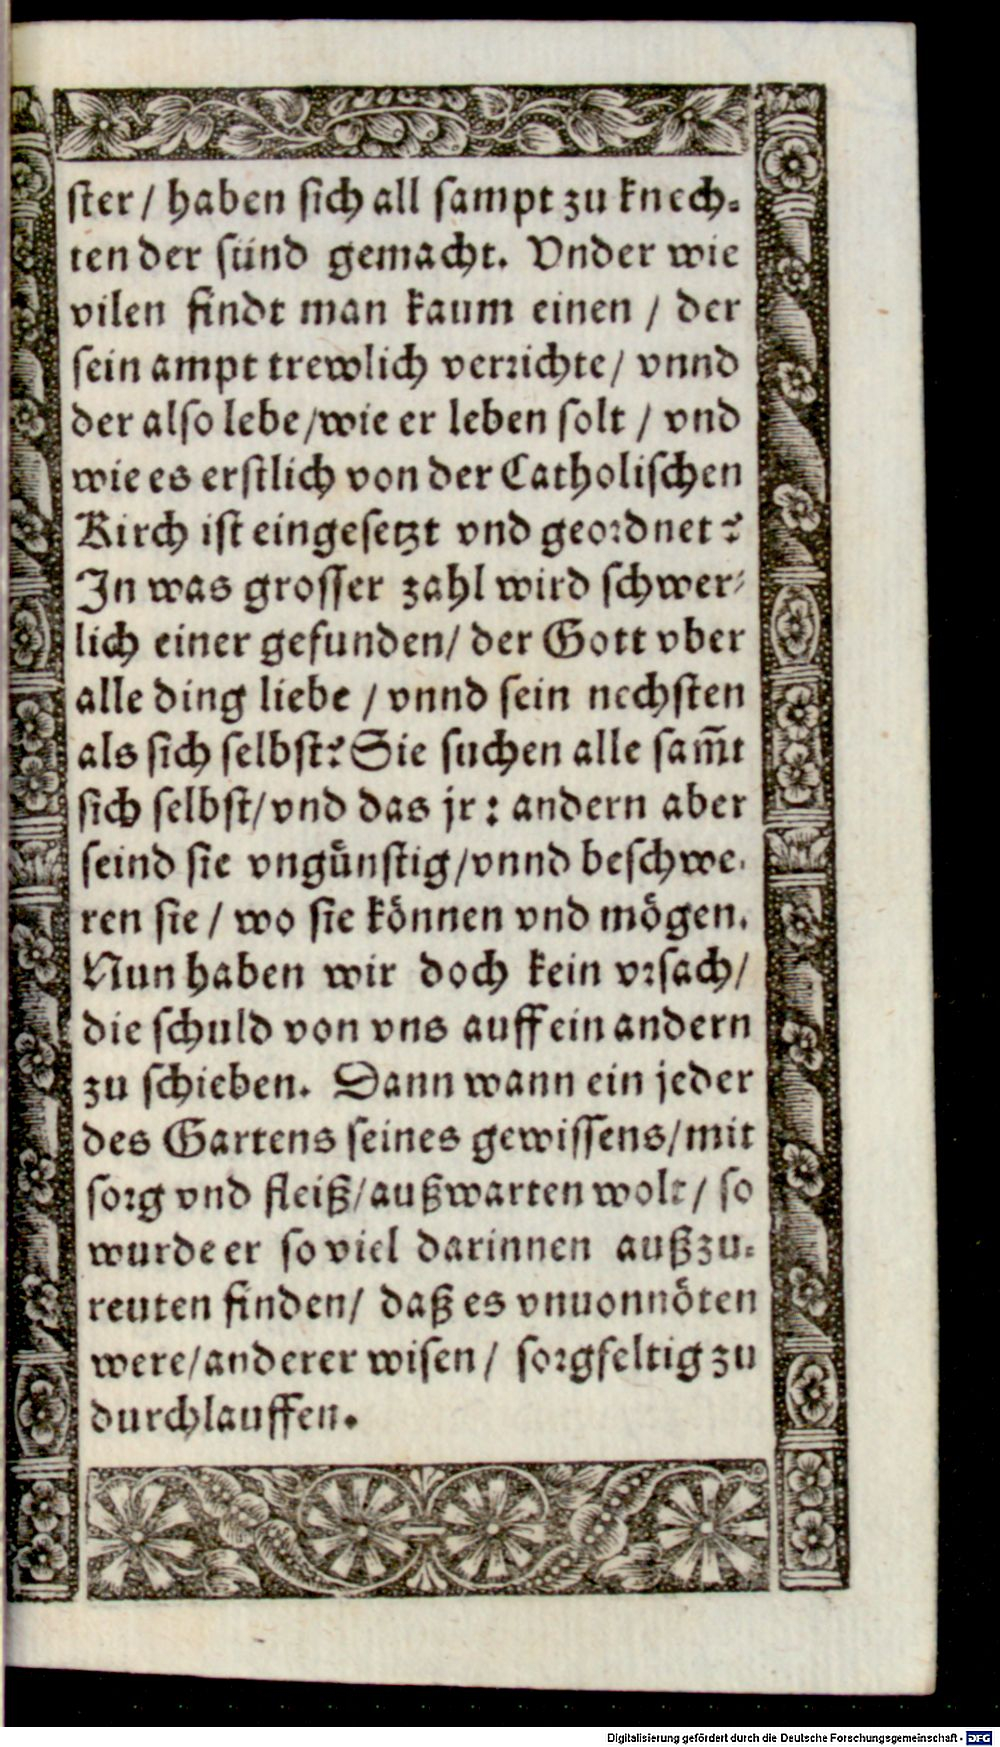 ster / haben sich all sampt zu knech-
ten der sünd gemacht. Vnder wie
vilen findt man kaum einen / der
sein ampt trewlich verrichte / vnnd
der also lebe / wie er leben solt / vnd
wie es erstlich von der Catholischen
Kirch ist eingesetzt vnd geordnet?
In was grosser zahl wird schwer-
lich einer gefunden / der Gott vber
alle ding liebe / vnnd sein nechsten
als sich selbst? Sie suchen alle sam̃t
sich selbst / vnd das jr: andern aber
seind sie vngünstig / vnnd beschwe-
ren sie / wo sie können vnd mögen.
Nun haben wir doch kein vrsach /
die schuld von vns auff ein andern
zu schieben. Dann wann ein jeder
des Gartens seines gewissens / mit
sorg vnd fleiß / außwarten wolt / so
wurde er so viel darinnen außzu-
reuten finden / daß es vnuonnöten
were / anderer wisen / sorgfeltig zu
durchlauffen.
Digitalisierung gefördert durch die Deutsche Forschungsgemeinschaft - DFG